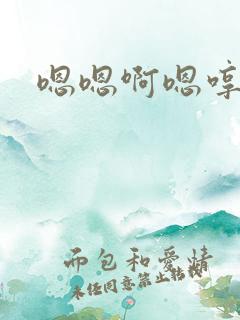 嗯嗯啊嗯哼
面包和爱情
未经同意禁止转载